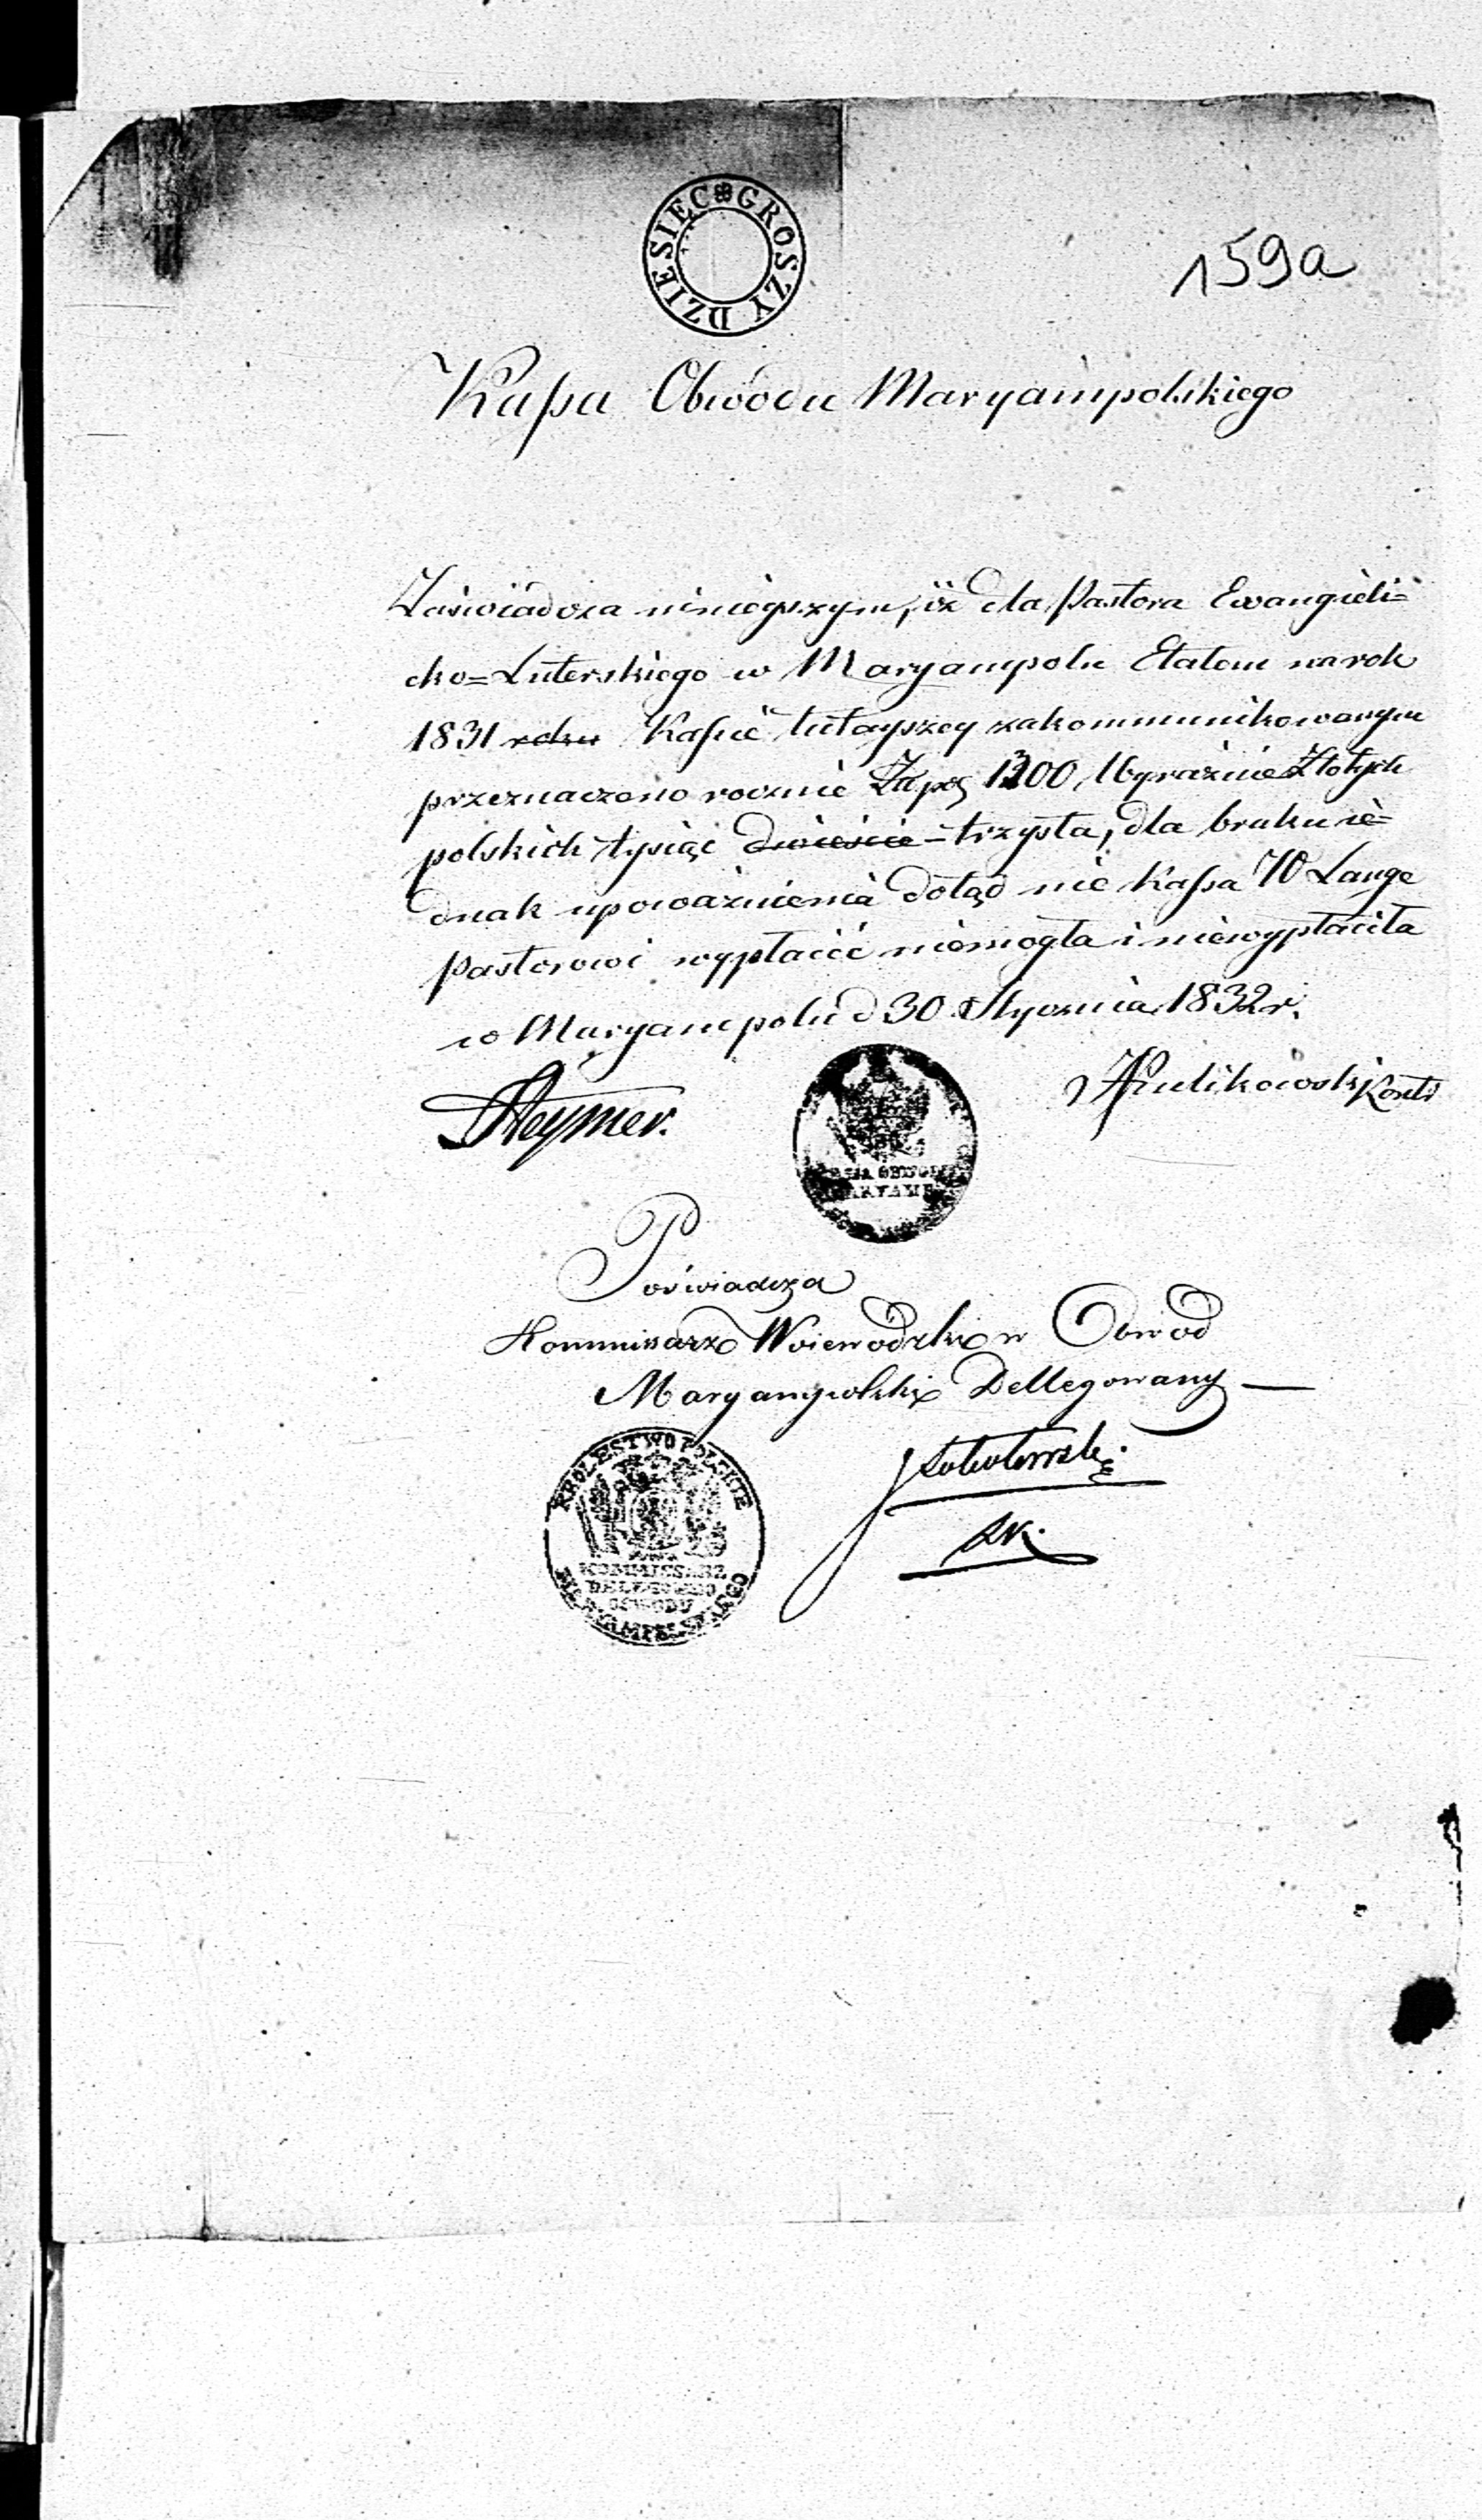 DZIESIĘC GROSZY
159a
Kassa Obwodu Maryampolskiego
Zaświadcza ninieyszym, iż dla Pastora Ewangieli=
cko=Luterskiego w Maryampolu Etatem na rok
1831 roku Kassie tuteyszey zakommunikowanym
przeznaczono rocznie Złpol 1300, Wyraźnie Złotych
polskich tysiąc dwieście - trzysta, dla braku ie=
dnak upoważnienia dotąd nie Kassa W Lange
Pastorowi wypłacić niemogła i niewypłaciła
w Maryampolu d 30 Stycznia 1832 r.
Heymer.
Kulikowski Kontr
Poświadcza
Kommissarz Woiewódzki w Obwod
Maryampolski Dellegowany
KROLESTWO POLSKIE
KOMMISSARZ
OBWODU